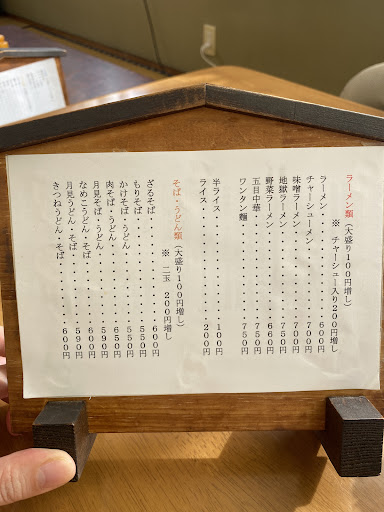 ラーメン類(大盛り100円増し)
※ チャーシュー入り200円増し
ラーメン・・・・・・・・・600円
チャーシューメン・・・・・・700円
味噌ラーメン・・・・・・・・700円
地獄ラーメン・・・・・・・・750円
野菜ラーメン・・・・・・・・660円
五目中華・・・・・・・・・750円
ワンタン麺・・・・・・・・750円
半ライス・・・・・・・・・100円
ライス・・・・・・・・・・200円
そば・うどん類(大盛り100円増し)
※ 二玉 200円増し
ざるそば・・・・・・・・・600円
もりそば・・・・・・・・・550円
かけそば・うどん・・・・・・550円
肉そば・うどん・・・・・・・650円
月見そば・うどん・・・・・・590円
なめこうどん・そば・・・・・600円
月見うどん・そば・・・・・・590円
きつねうどん・そば・・・・・600円